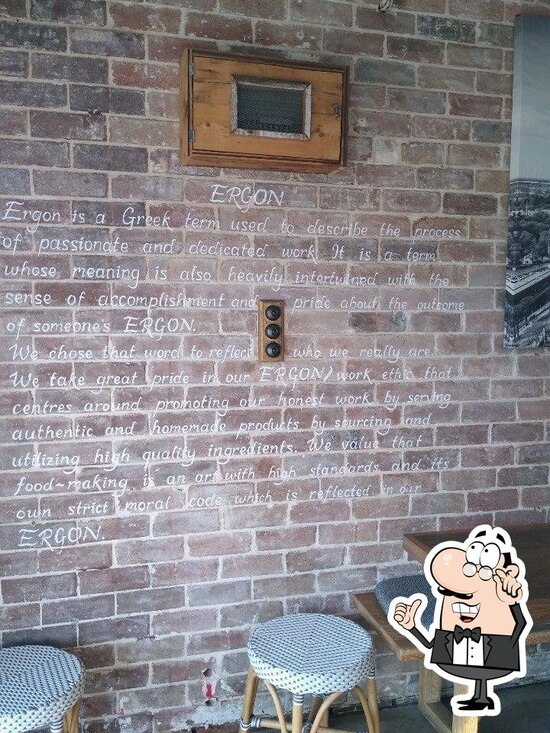 ERGON
Ergon is a Greek term used to describe the process
of passionate and dedicated work. It is a term
whose meaning is also heavily intertwined with the
sense of accomplishment and pride about the outcome
of someone's ERGON.
We chose that word to reflect who we really are.
We take great pride in our ERGON/work ethic that
centres around promoting our honest work by serving
authentic and homemade products by sourcing and
utilizing high quality ingredients. We value that
food-making is an art with high standards and its
own strict moral code which is reflected in our
ERGON.